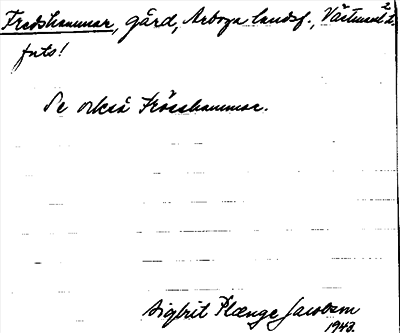 Fredshammar, gård, Arboga landsf., Västmanl.
Se också Frösshammar.
Sigbrit Plænge Jacobson
1948.